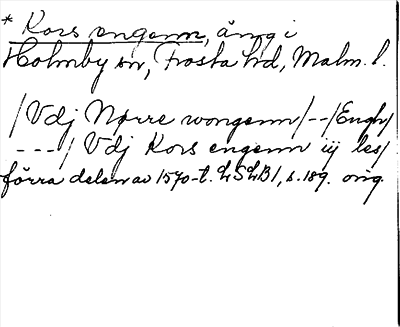 * Kors engenn, äng i
Holmby sn, Frosta hd, Malm. l.
/Vdj Nørre wongenn/--/Engh/
---/ Vdj Kors engenn iij les/
förra delen av 1570-t. LSLB1, s. 189. orig.